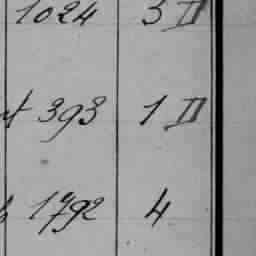 1024 3 II
393 1 II
1792 4